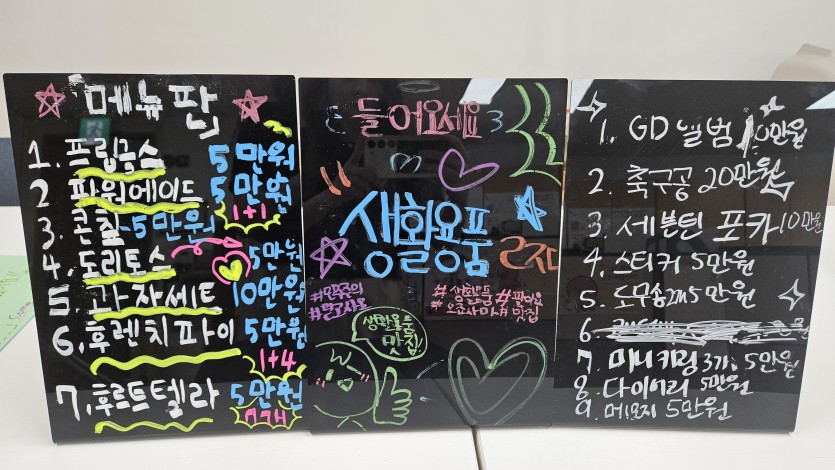 「메뉴판」
1. 프링글스 5만원
2 파워에이드 5만원
1+1
3. 콘칲 - 5만원
4. 도리토스 5만원
5. 과자세트 10만원
6. 후렌치파이 5만원
1+4
7. 후르트텔라 5만원
들어요세요
생활용품
#생활용품
맛집
생활용품
맛집!
1. GD 앨범 10만원
2. 축구공 20만원
3. 세븐틴 포카 10만원
4. 스티커 5만원
5. 도무송 2매 5만원
6
7. 미니 키링 3개, 5만원
8. 다이어리 5만원
9. 메모지 5만원